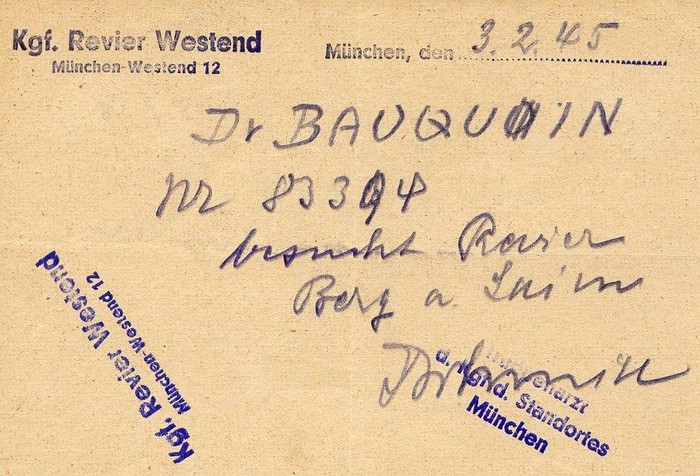 Kgf. Revier Westend
München-Westend 12
München, den 3.2.45
Dr BAUQUAIN
Nr 83394
besucht Revier
Berg a. Laim
Kgf. Revier Westend
München-Westend 12
d. Kgf. d. Standortes
München